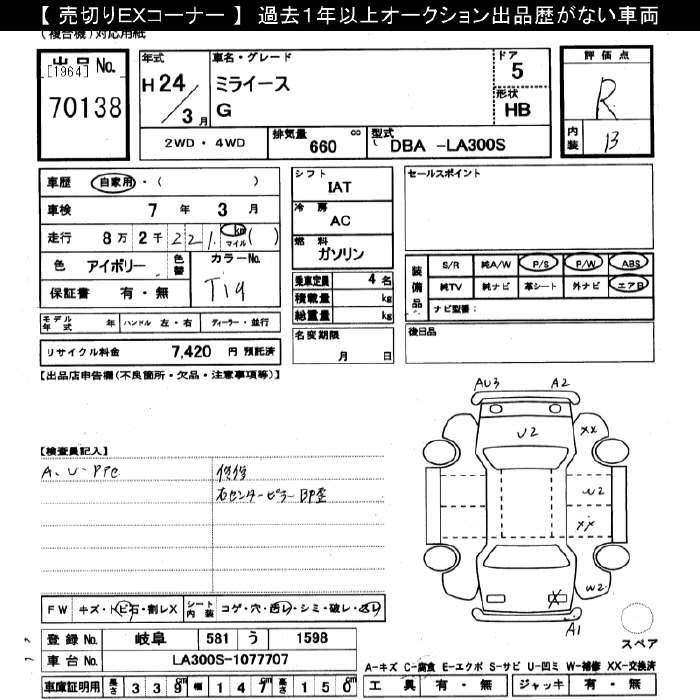 【 売切りEXコーナー 】 過去1年以上オークション出品歴がない車両
(複合機)対応用紙
出品 No.
[1964]
70138
年式
H 24
3 月
車名・グレード
ミライース
G
ドア
5
形状
HB
2WD・4WD
排気量
660 cc
型式
DBA -LA300S
評価点
R
内装
B
車歴 自家用・( )
車検 7 年 3 月
走行 8 万 2 千 2 2 1 km マイル ( )
色 アイボリー
色替
カラーNo.
T19
保証書 有・無
モデル年式 年
ハンドル 左・右
ディーラー・並行
リサイクル料金 7,420 円 預託済
シフト
IAT
冷房
AC
燃料
ガソリン
乗車定員 4 名
積載量 kg
総重量 kg
名変期限
月 日
セールスポイント
装備品
S/R 純A/W P/S P/W ABS
純TV 純ナビ 革シート 外ナビ エアB
ナビ型番:
後日品
【出品店申告欄(不良箇所・欠品・注意事項等)】
【検査員記入】
A、U-PTC
修復
右センターピラー BP歪
AU3
A2
U2
XX
W2
XX
W2
X
A1
スペア
FW キズ・トビ石・割レX
シート内装 コゲ・穴・汚レ・シミ・破レ・スレ
登録 No. 岐阜 581 う 1598
車台 No. LA300S-1077707
車庫証明用 長さ 3 3 9 cm 幅 1 4 7 cm 高さ 1 5 0 cm
A-キズ C-腐食 E-エクボ S-サビ U-凹ミ W-補修 XX-交換済
工具 有・無
ジャッキ 有・無